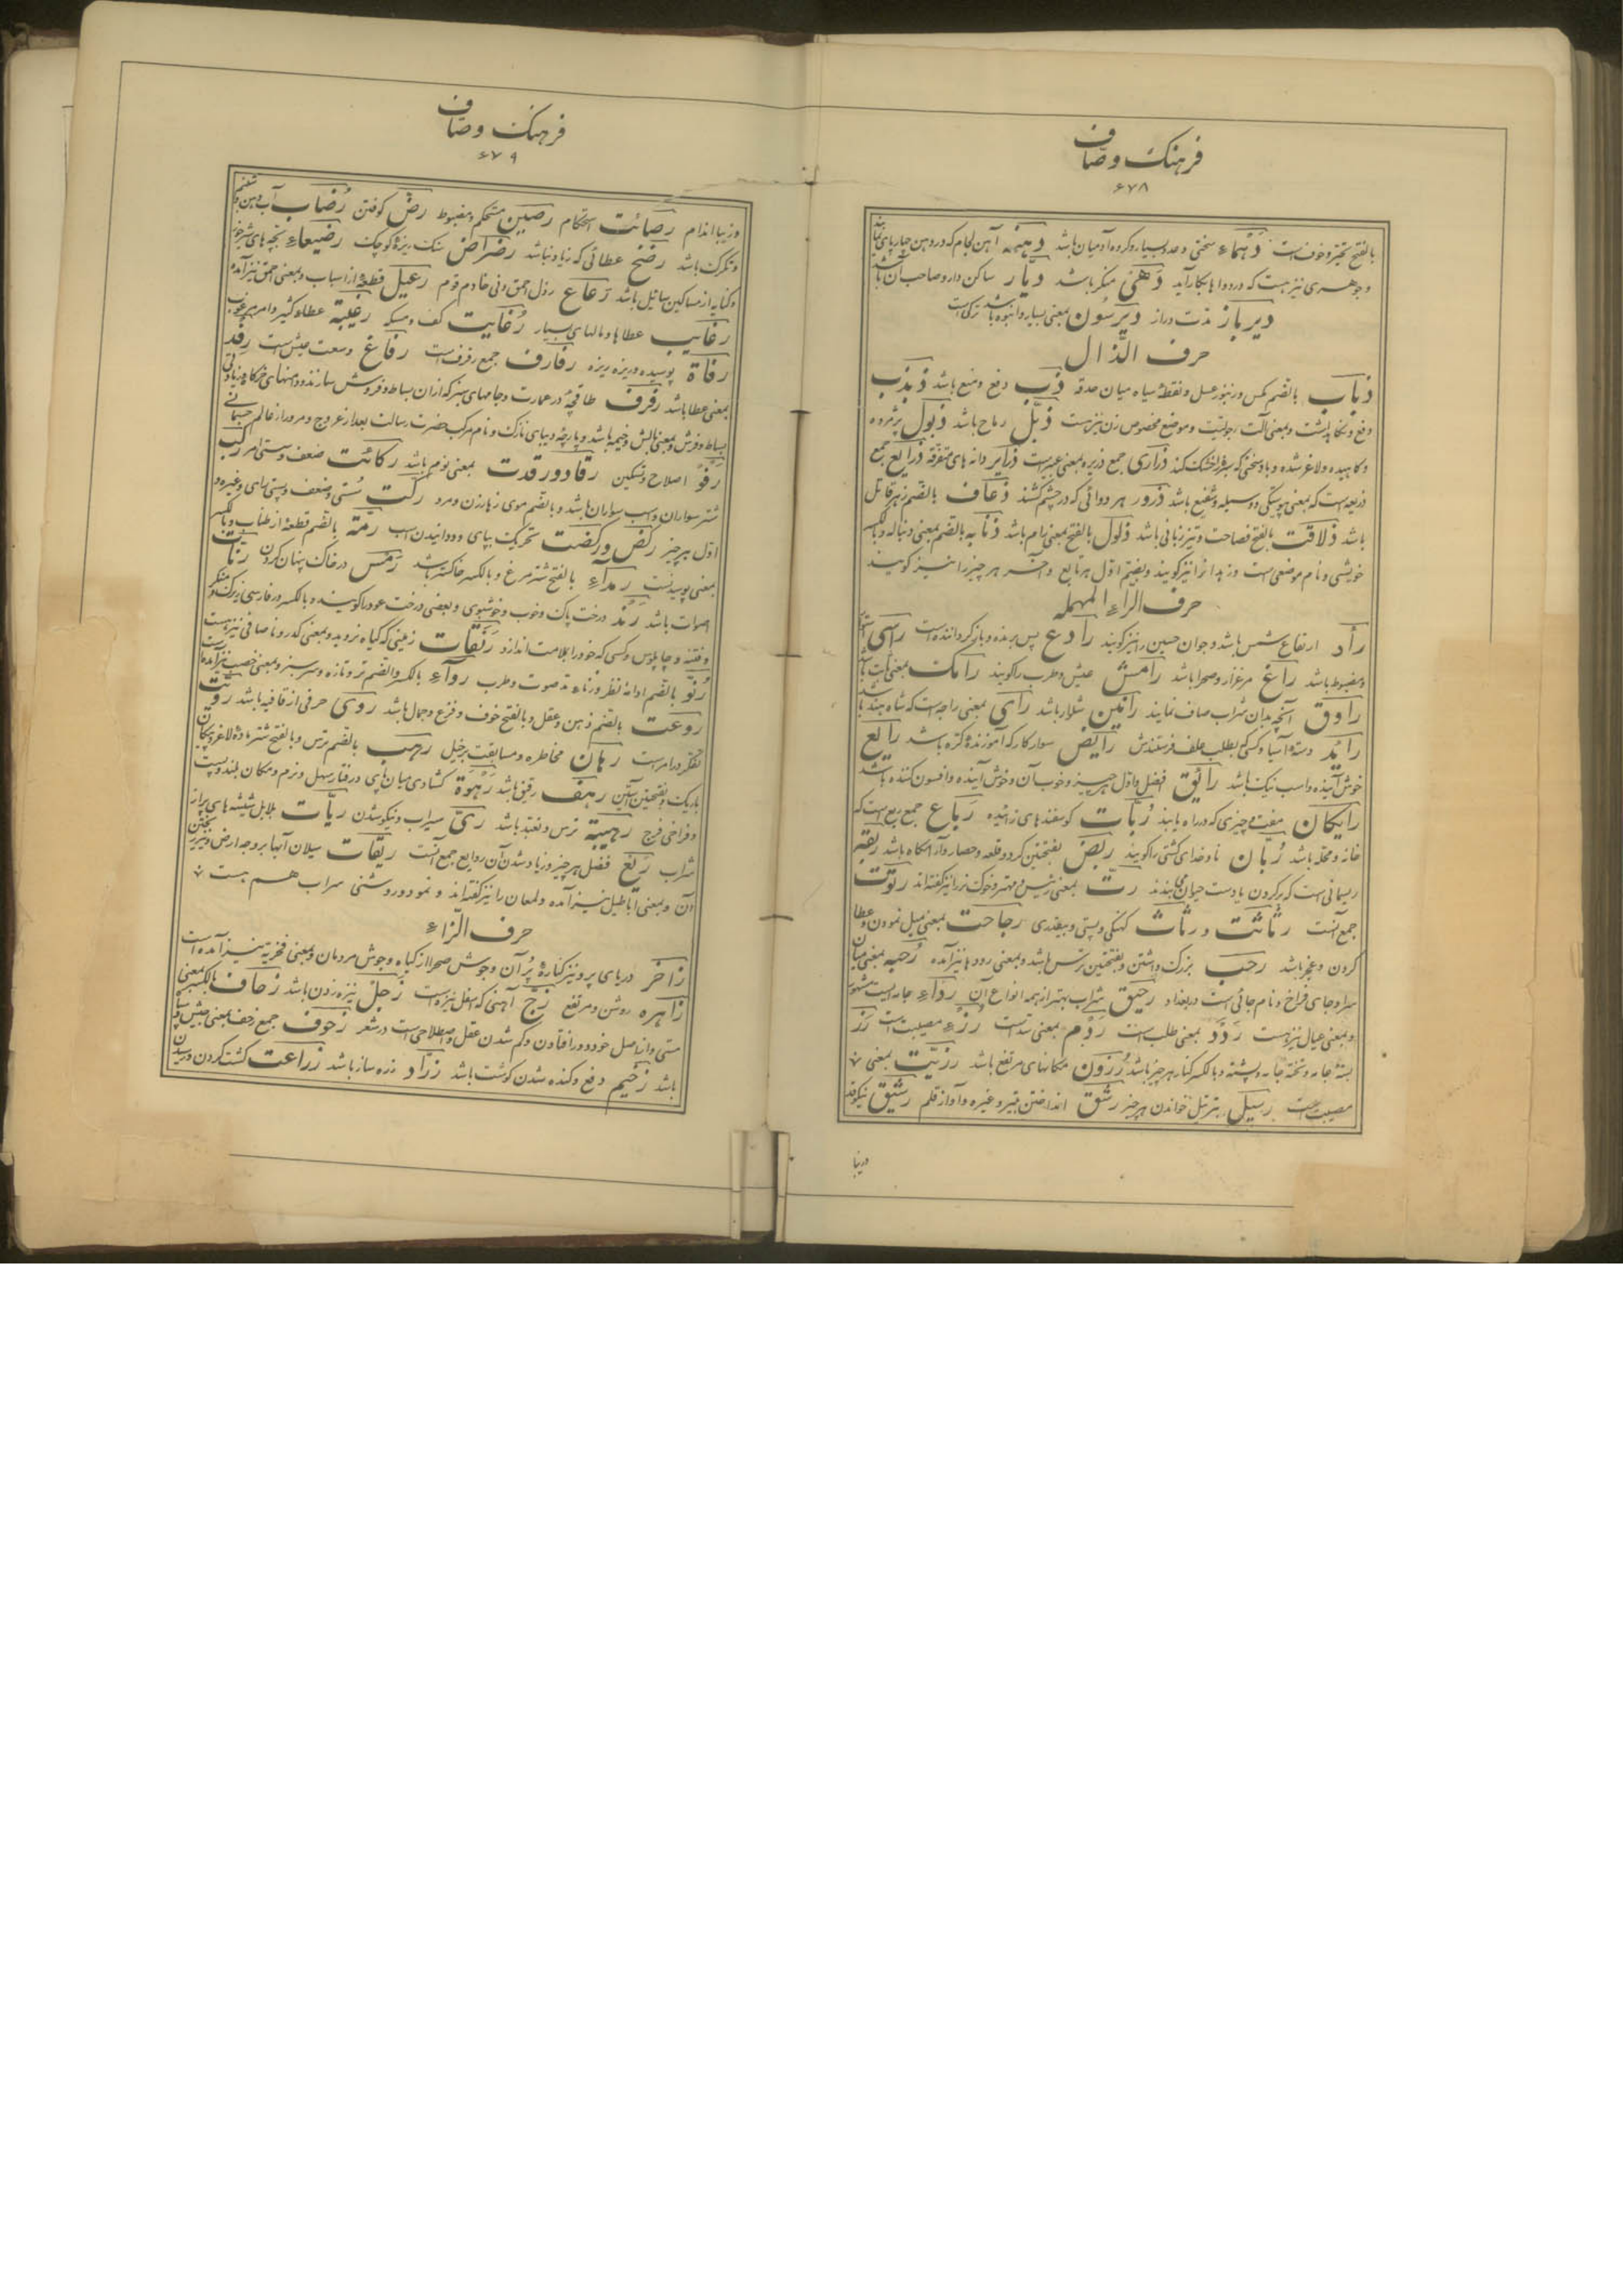 فرهنگ وصّاف
۶۷۸
بالفتح تحیّر و خوف است دَهْماء سختی و عدد بسیار و گروه آدمیان باشد دهنه آهن لجام که در دهن چهارپای
و جوهری نیز هست که در دواها بکار آید دَهْی منکر باشد دیّار ساکن دار و صاحب آن باشد
دیرباز مدّت دراز دیرسون بمعنی بسیار و انبوه باشد ترکی است
حرف الذّال
ذباب بالضّم مگس و زنبور عسل و نقطهٔ سیاه میان حدقه ذبّ دفع و منع باشد ذبذب
دفع و نگاهداشت و بمعنی آلت رجولیّت و موضع مخصوص زن نیز هست ذبّل رماح باشد ذبول پژمرده
و کاهیده و لاغر شده و باد سختی که سبزه را خشک کند ذراری جمع ذریره بمعنی عبیر است ذرایر دانه های متفرّقه ذرایع جمع
ذریعه است که بمعنی پیوستگی و وسیله و شفیع باشد ذرور هر دوائی که در چشم کشند ذعاف بالضّم زهر قاتل
باشد ذلاقت بالفتح فصاحت و تیز زبانی باشد ذلول بالفتح بمعنی رام باشد ذنابه بالضّم بمعنی دنباله و بالکسر
خویشی و نام موضعی است و زهدان را نیز گویند و بضّم اوّل هر تابع و آخر هر چیز را نیز گویند
حرف الرّاء المهمله
رأد ارتفاع شمس باشد و جوان حسین را نیز گویند رادع پس برنده و بازگرداننده است راسی استوار
و مضبوط باشد راغ مرغزار و صحرا باشد رامش عیش و طرب را گویند رامک
راوق آنچه بدان شراب صاف نمایند رانین شلوار باشد رای بمعنی راجه است که شاه هند باشد
رائد دستهٔ آسیا و کسی که بطلب علف فرستندش رایض سوار کار که آموزندهٔ کره باشد رایع
خوش آینده و اسب نیک باشد رایق افضل و اوّل هر چیز و خوب آن و خوش آینده و افسون کننده باشد
رایگان مفت و چیزی که در راه یابند رُبّات گوسفندهای زائیده رَباع جمع ربع است که
خانه و محلّه باشد رُبان ناوخدای کشتی را گویند ربض بفتحتین گرد و قلعه و حصار و آرامگاه باشد ربقه
ریسمانی است که بر گردن یا دست حیوان می بندند رتّ بمعنی رئیس و مهتر و خوک نر را نیز گفته اند رتوت
جمع آنست رثاثت و رثاث کهنگی و پستی و بیقدری رجاحت بمعنی میل نمودن و عطا
کردن و عجز باشد رجب بزرگ داشتن و بفتحتین ترس باشد و بمعنی روده ها نیز آمده رحبه بمعنی میان
سرا و جای فراخ و نام جائی است در بغداد رحیق شراب بهتر از همه انواع آن رداء جامه ایست مشهور
و بمعنی عیال نیز هست رَدَد بمعنی طلب است رَدْم بمعنی سدّ است رزء مصیبت است رَز
بسته جامه و تخته جامه و پشته و بالکسر کنار هر چیز باشد رُزون مکانهای مرتفع باشد رزیّت بمعنی
مصیبت است رسیل بترتیل خواندن هر چیز رشق انداختن تیر و غیره و آواز قلم رشیق نیکو قد
و زیبا
فرهنگ وصّاف
۶۷۹
و زیبا اندام رصانت استحکام رصین مستحکم و مضبوط رضّ کوفتن رُضاب آب دهن و شبنم
و تگرگ باشد رضخ عطائی که زیاد نباشد رضراض سنگ ریزهٔ کوچک رضیعاء بچه های شیرخوار
و کنایه از مساکین سائیل باشد رَعاع رذل و احمق و دنی خادم قوم رعیل قطعهٔ از اسباب و بمعنی احمق نیز آمده
رغایب عطاها و مالهای بسیار رُغایت کف و مسکه رغیبة عطاء کثیر و امر مرغوب
رفاة پوسیده و ریزه ریزه رفارف جمع رفرف است رفاغ وسعت عیش است رِفد
بمعنی عطا باشد رفرف طاقچهٔ در عمارت و جامهای سبز که از آن بساط و فروش سازند و دامنهای خرگاه و زیادتی
بساط و فرش و بمعنی بالش و خیمه باشد و پارچهٔ دیبای نازک و نام مرکب حضرت رسالت بعد از عروج و مرور از عالم جسمانی
رَفو اصلاح و تسکین رقاد و رقدت بمعنی نوم باشد رکاکت ضعف و سستی امر رکب
شتر سواران و اسب سواران باشد و بالضّم موی زهار زن و مرد رکّت سُستی و ضعف و پستی رای و غیره و
اوّل هر چیز رکض و رکضت تحریک بپای و دوانیدن اسب رمّه بالضّم قطعهٔ از طناب و بالکسر
بمعنی پوسیدنست رمداء بالفتح شتر مرغ و بالکسر خاکستر باشد رَمْس در خاک پنهان کردن رنّات
اصوات باشد رَند درخت پاک و خوب و خوشبوی و بعضی درخت عود را گویند و بالکسر در فارسی زیرک و منکر
و فتنه و چاپلوس و کسی که خود را بملامت اندازد رَنَقات زمینی که گیاه نروید و بمعنی کدر و ناصافی نیز هست
رُنوّ بالضّم ادامهٔ نظر و رناء مدّ صوت و طرب رواء بالکسر و الضّم تر و تازه و سرسبز و بمعنی خصب نیز آمده
روعت بالضّم ذهن و عقل و بالفتح خوف و فزع و جمال باشد روی حرفی از قافیه باشد رویّت
تفکّر در امر است رهان مخاطره و مسابقت بر خیل رهب بالضّم ترس و بالفتح شتر ماده لاغر و پیکان
باریک و بفتحتین آستین رهیف رقیق باشد رَهوة گشادی میان پای در رفتار سهل و نرم و مکان بلند و پست
و فراخی فرج رهبة ترس و تعبّد باشد ریّ سیراب و نیکو شدن ریّات بلابل شیشه های پر از
شراب رَیع فضل هر چیز و زیاد شدن آن روایع جمع آنست ریقات سیلان آبها بر وجه ارض
آن و بمعنی اباطیل نیز آمده و لمعان را نیز گفته اند و نمود و روشنی سراب هم هست
حرف الزّاء
زاخر دریای پر و نیز کنارهٔ پُر آن و جوش صحرا از گیاه و جوش مردمان و بمعنی فخریه نیز آمده است
زاهره روشن و مرتفع زجّ آهنی که اسفل نیزه است زجل نیزه زدن باشد زحاف بالکسر بمعنی
مستی و از اصل خود دور افتادن و کم شدن عقل و اصطلاحی است در شعر زحوف جمع زحف بمعنی جیش
باشد زخیم دفع و کنده شدن گوشت باشد زرّاد زره ساز باشد زراعت کشت کردن